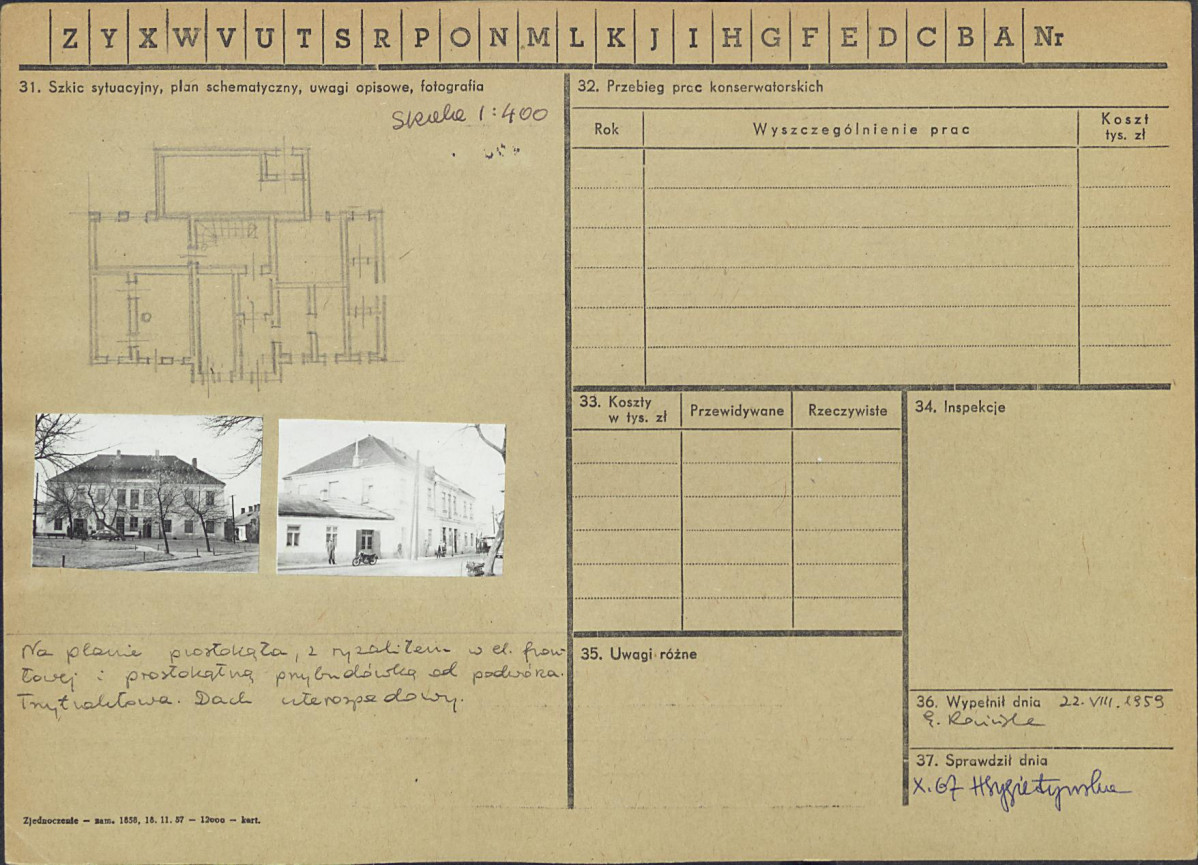 Z Y X W V U T S R P O N M L K J I H G F E D C B A Nr
31. Szkic sytuacyjny, plan schematyczny, uwagi opisowe, fotografia
Skala 1:400
Na planie prostokąta, z ryzalitem w el. fron-
towej i prostokątną przybudówką od podwórza.
Trzytraktowa. Dach czterospadowy.
Zjednoczenie — zam. 1858, 18. 11. 57 — 12000 — kart.
32. Przebieg prac konserwatorskich
Rok Wyszczególnienie prac Koszt tys. zł
33. Koszty w tys. zł Przewidywane Rzeczywiste
34. Inspekcje
35. Uwagi różne
36. Wypełnił dnia 22. VIII. 1959
37. Sprawdził dnia
X. 67